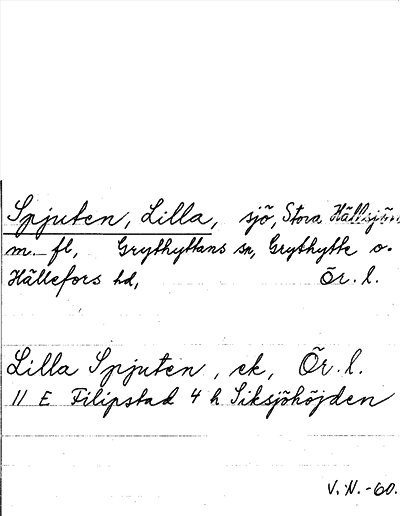 Spjuten, Lilla, sjö, Stora Hällsjön
m. fl, Grythyttans sn, Grythytte o.
Hällefors hd, Ör. l.
Lilla Spjuten, ek, Ör. l.
11 E Filipstad 4 h Siksjöhöjden
V. N. -60.